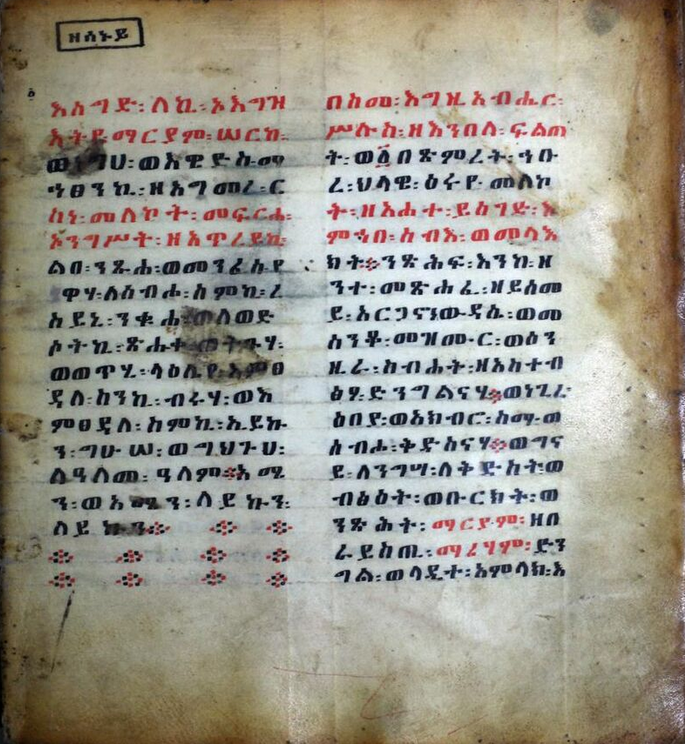 ዘሰኑይ
እሰግድ፡ ለኪ፡ ኦእግዝ
እትየ ማርያም፡ ሠርከ፡
ወእዌድስ ማ
ኀፀንኪ፡ ዘእግመረ፡ ር
ስነ፡ መለኮት፡ መፍርሔ፡
ኦንግሥት፡ ዘአጥረይኪ፡
ልበ፡ ንጹሐ፡ ወመንፈሰ የ
ዋሃ፡ ለስብሐ፡ ስምኪ፡ ረ
ስይኒ፡ ንቁሐ፡ ወለወድ
ሶትኪ፡ ጽሑቀ፡ ወትጉሃ፡
ወወጥሂ፡ ላዕሌየ፡ እምፀ
ዳለ፡ ስንኪ፡ ብሩሃ፡ ወእ
ምፀዳለ፡ ስምኪ፡ ኢይኩ
ን፡ ግሁሠ፡ ወግህጉሀ፡
ለዓለመ፡ ዓለም፨አሜ
ን፡ ወአሜን፡ ለይኩን፡
ለይኩን፨
በስመ፡ እግዚአብሔር፡
ሥሉስ፡ ዘእንበለ፡ ፍልጠ
ት፡ ወ፩ በጽምረት፡ ኀቡ
ረ፡ ህላዌ፡ ዕሩየ፡ መለኮ
ት፡ ዘአሐተ፡ ይሰግድ፡ እ
ምኀበ፡ ሰብእ፡ ወመላእ
ክት፨ንጽሕፍ፡ እንከ፡ ዘ
ንተ፡ መጽሐፈ፡ ዘይሰመ
ይ፡ አርጋኖነ ውዳሴ፡ ወመ
ሰንቆ፡ መዝሙር፡ ወዕን
ዚራ፡ ስብሐት፡ ዘአስተብ
ፅዖ፡ ድንግልናሃ፨ወነጊረ፡
ዕበያ፡ ወአክብሮ፡ ስማ፡ ወ
ሰብሖ፡ ቅድስናሃ፨ወግና
ይ፡ ለንግሣ፡ ለቅድስት፡ ወ
ብፅዕት፡ ወቡርክት፡ ወ
ንጽሕት፡ ማርያም፡ ዘበ
ራይስጢ፡ ማሪሃም፡ ድን
ግል፡ ወላዲተ፡ አምላክ፡ እ